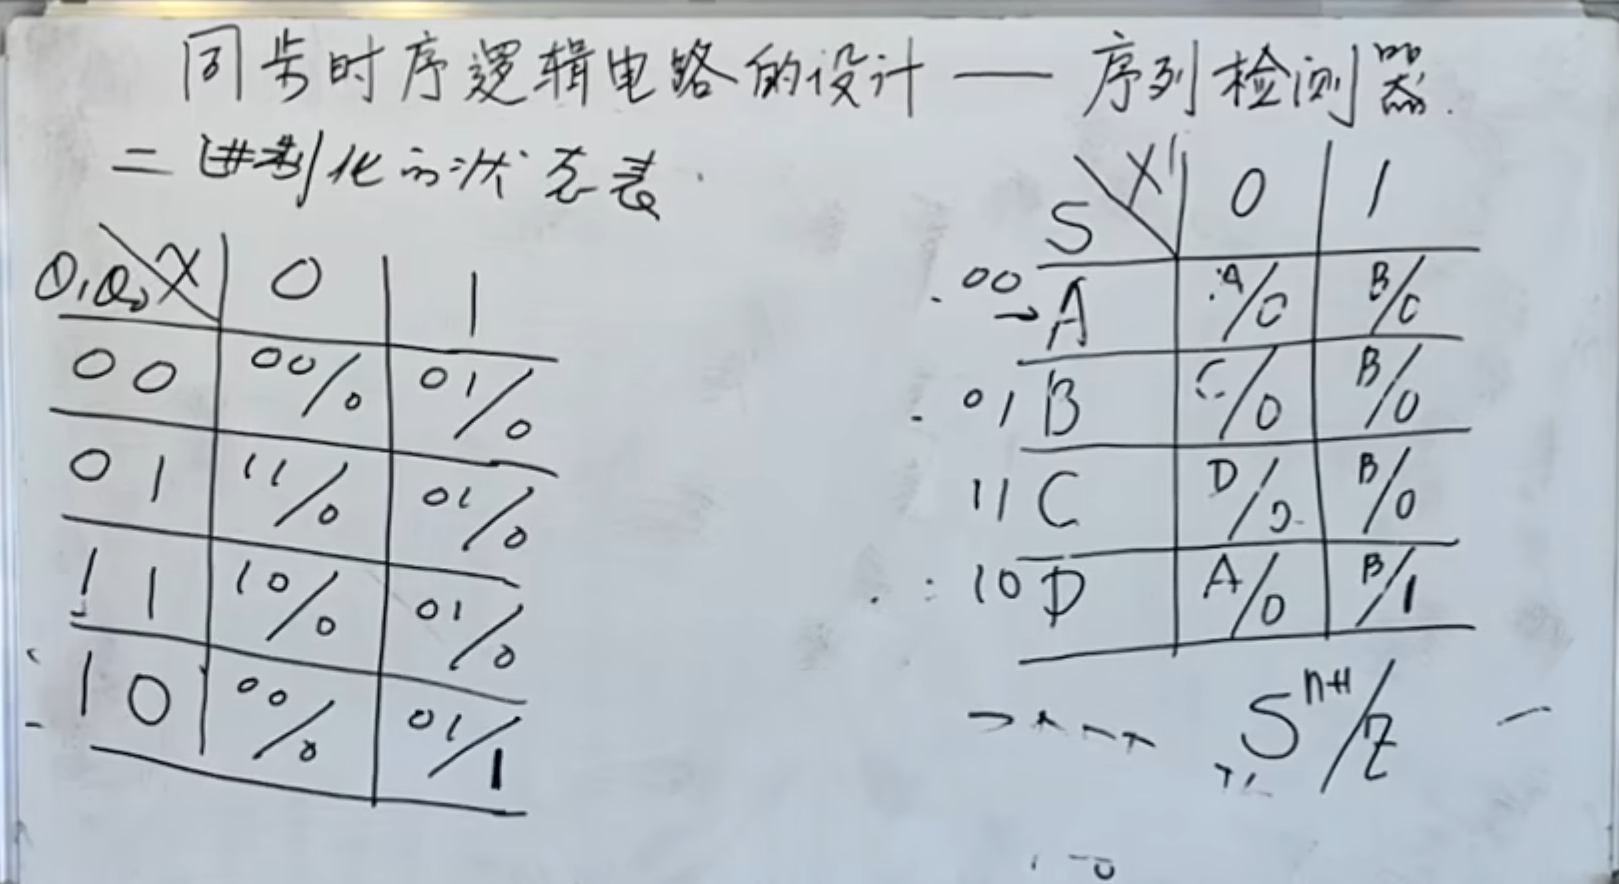 同步时序逻辑电路的设计 — 序列检测器.
二进制化的状态表.
Q₁Q₀ X 0 1
00 00/0 01/0
01 11/0 01/0
11 10/0 01/0
10 00/0 01/1
S X 0 1
00 → A A/0 B/0
01 B C/0 B/0
11 C D/0 B/0
10 D A/0 B/1
Sⁿ⁺¹/Z